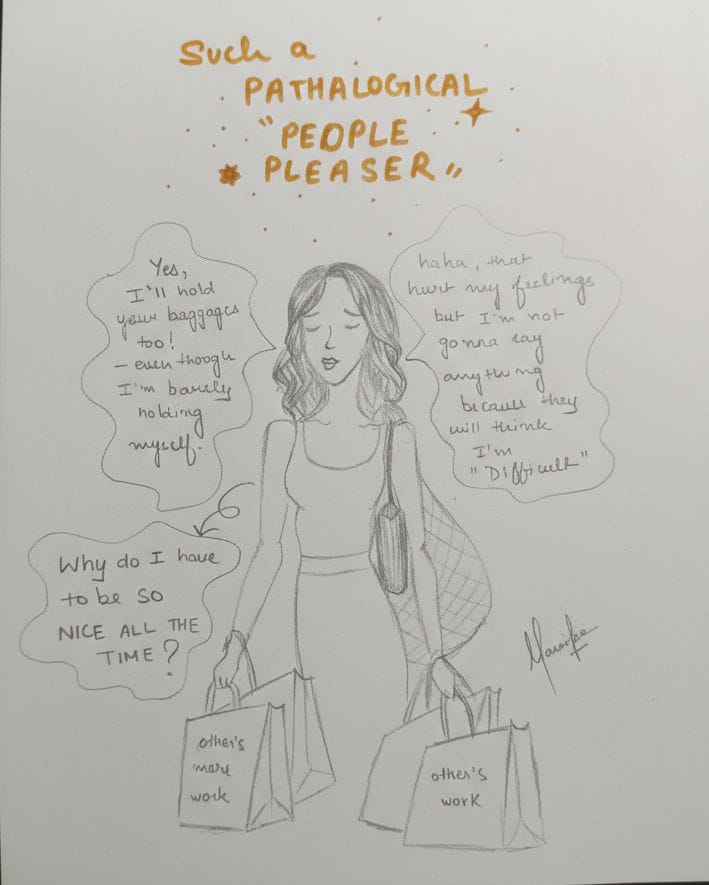 Such a
PATHALOGICAL
"PEOPLE
PLEASER"
Yes,
I'll hold
your baggages
too!
- even though
I'm barely
holding
myself.
haha, that
hurt my feelings
but I'm not
gonna say
anything
because they
will think
I'm
"Difficult"
Why do I have
to be so
NICE ALL THE
TIME?
other's
more
work
other's
work